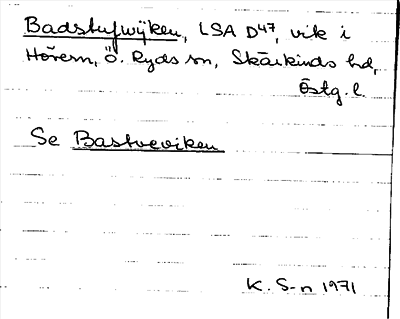 Badstufwijken, LSA D47, vik i
Hövern, Ö. Ryds sn, Skärkinds hd,
Östg. l.
Se Bastuviken
K. S-n 1971